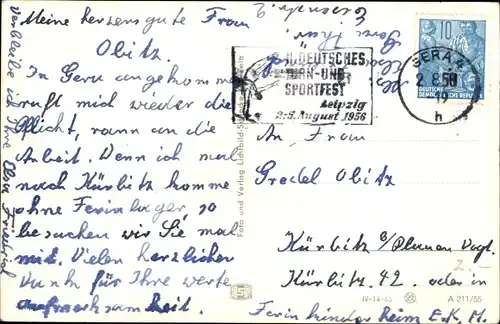 Meine herzensgute Frau
Obitz.
In Gera angekommen
ruft mich wieder die
Pflicht, rann an die
Arbeit. Wenn ich mal
nach Kürbitz komme
ohne Ferienlager, so
besuchen wir Sie mal
mit. Vielen herzlicher
Dank für Ihre werte
Aufmerksamkeit.
verbleibe ich Ihre Elsa
DEUTSCHES
TURN-UND
SPORTFEST
Leipzig
2.-5. August 1956
GERA
2.8.56
h
10
DEUTSCHE
DEMOKRATISCHE REPUBLIK
Foto und Verlag Lichtbild-
An, Frau
Gredel Obitz
Kürbitz b/Plauen Vogtl.
Kürbitz. 42. oder in
Ferienkinder Heim E.K.M.
IV-14-45
A 211/55